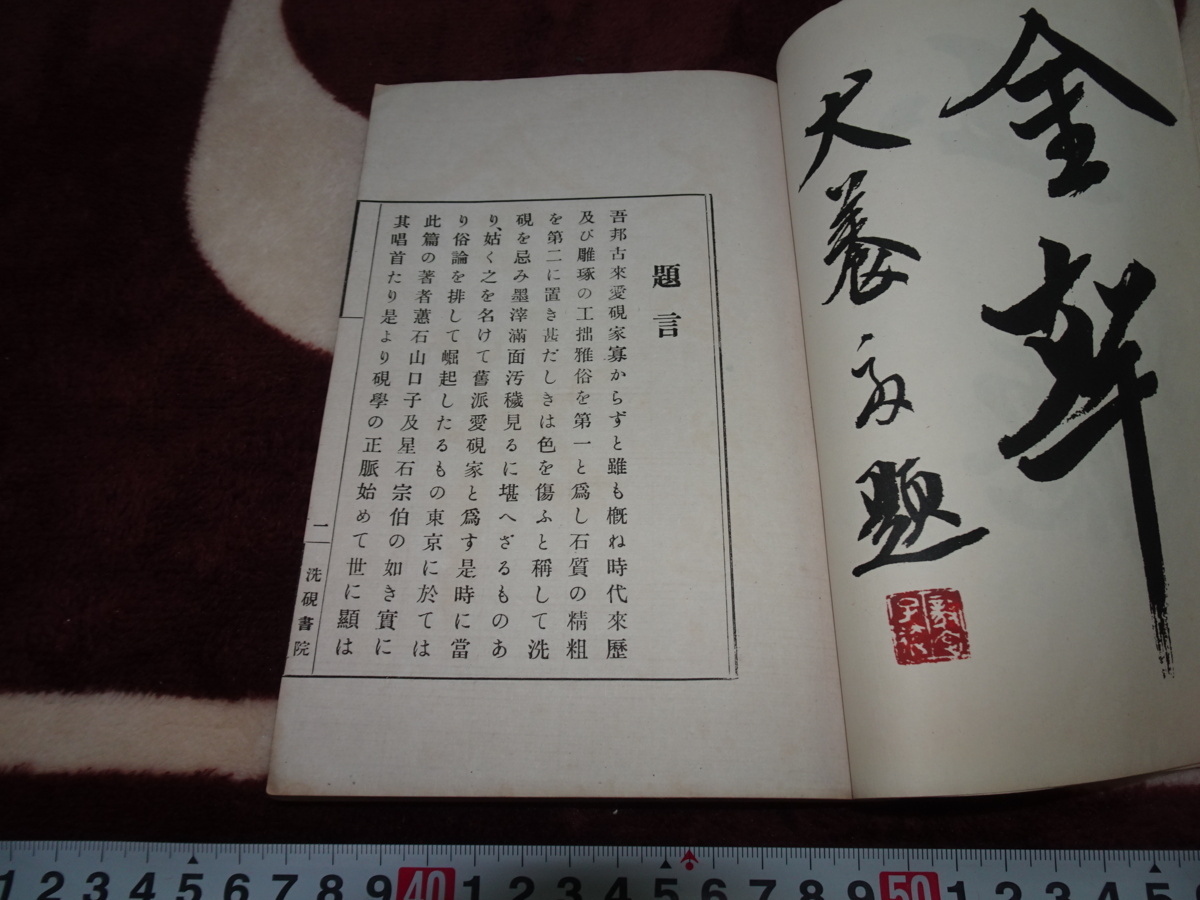 金聲
犬養毅題
題言
吾邦古來愛硯家寡からずと雖も槪ね時代來歷
及び雕琢の工拙雅俗を第一と爲し石質の精粗
を第二に置き甚だしきは色を傷ふと稱して洗
硯を忌み墨滓滿面汚穢見るに堪へざるものあ
り、姑く之を名けて舊派愛硯家と爲す是時に當
り俗論を排して崛起したるもの東京に於ては
此篇の著者蕙石山口子及星石宗伯の如き實に
其唱首たり是より硯學の正脈始めて世に顯は
一
洗硯書院
1 2 3 4 5 6 7 8 9 40 1 2 3 4 5 6 7 8 9 50 1 2 3 4 5